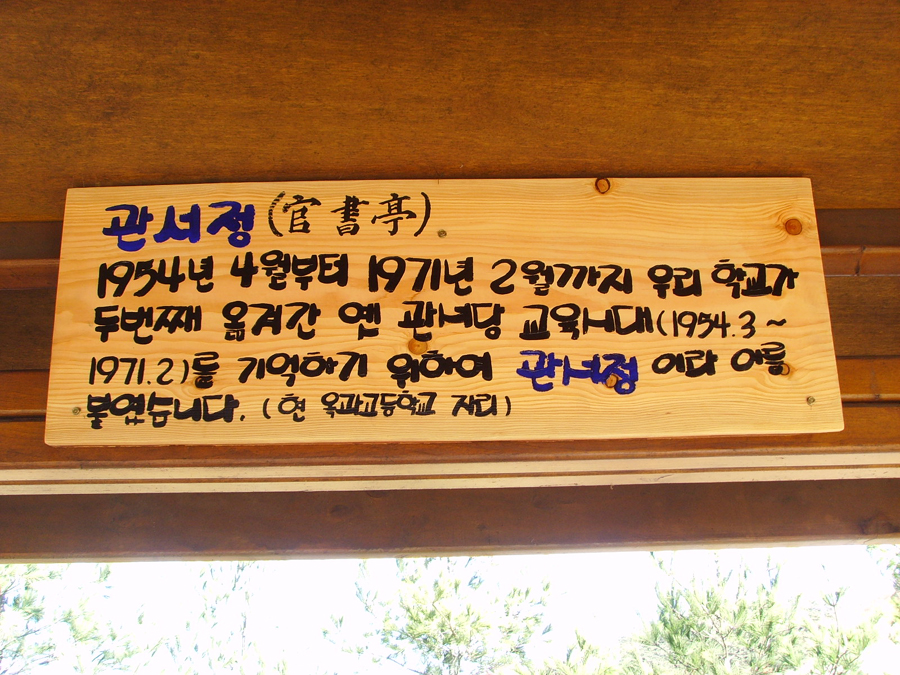 관서정(官書亭)
1954년 4월부터 1971년 2월까지 우리 학교가
두번째 옮겨간 옛 관서당 교육시대(1954.3~
1971.2)를 기억하기 위하여 관서정 이라 이름
붙였습니다. (현 옥과고등학교 자리)